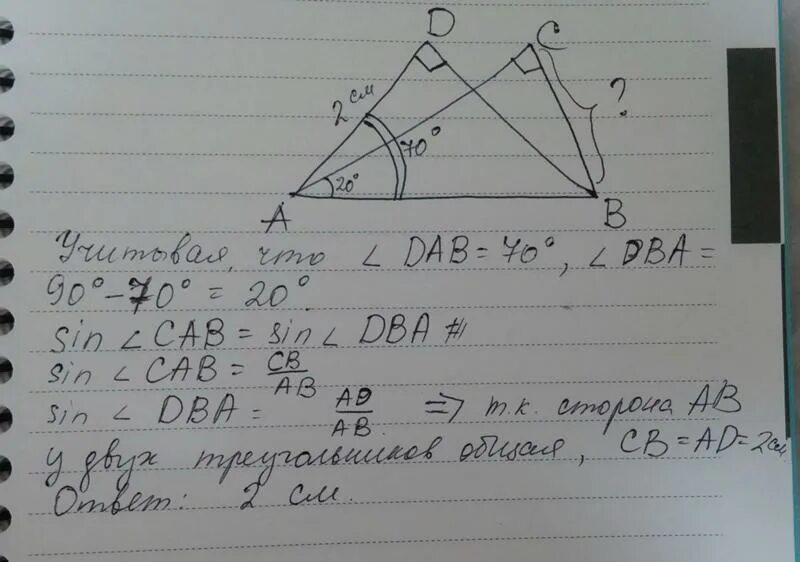 D
C
2 см
?
70°
20°
A
B
Учитывая, что ∠ DAB = 70°, ∠ DBA =
90° - 70° = 20°.
sin ∠ CAB = sin ∠ DBA
sin ∠ CAB = CB/AB
sin ∠ DBA = AD/AB ⇒ т.к. сторона AB
у двух треугольников общая, CB = AD = 2см.
Ответ: 2 см.